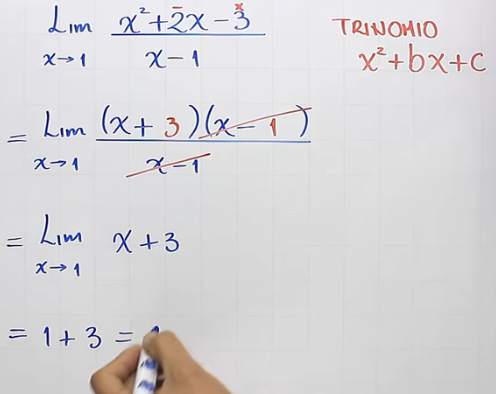 Lim x→1 (x²+2x-3)/(x-1)
TRINOMIO
x²+bx+c
= Lim x→1 (x+3)(x-1)/(x-1)
= Lim x→1 x+3
= 1+3 =